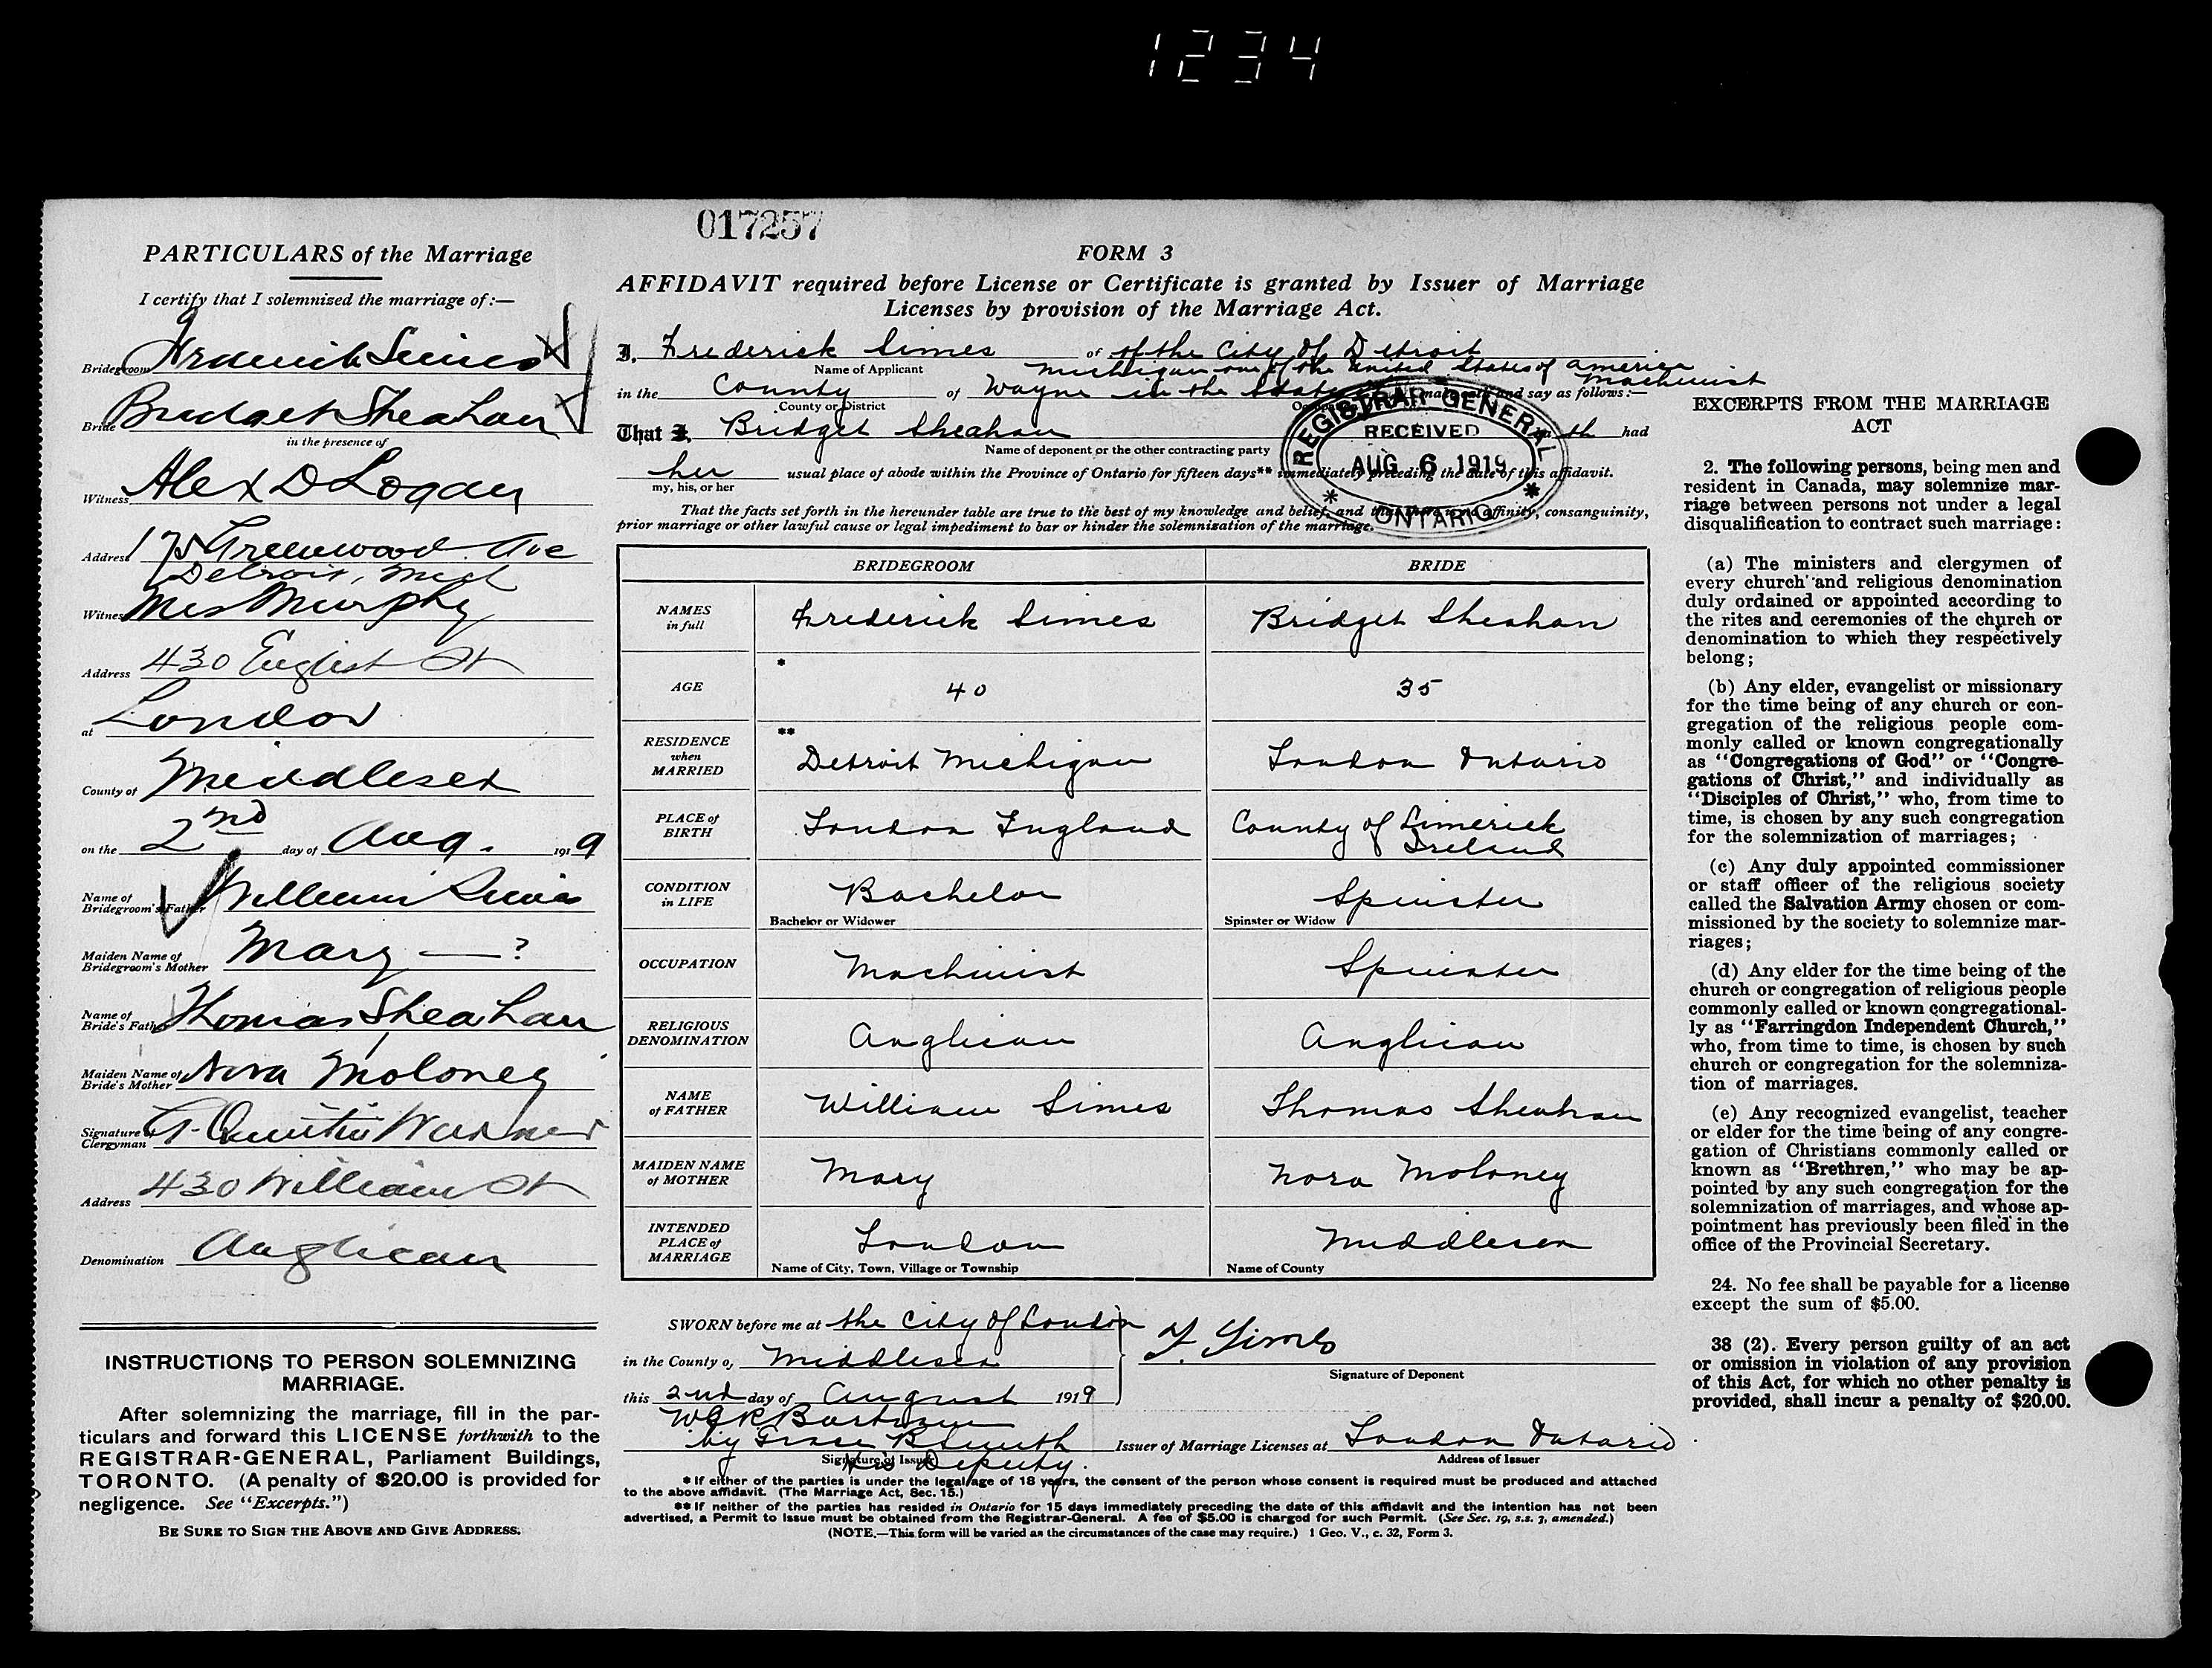 1234
017257
PARTICULARS of the Marriage
I certify that I solemnized the marriage of:—
Bridegroom Frederick Simes
Bride Bridget Sheahan
in the presence of
Witness Alex D Logan
Address 175 Greenwood Ave
Detroit, Mich
Witness Mrs Murphy
Address 430 English St
at London
County of Middlesex
on the 2nd day of Aug. 1919
Name of Bridegroom's Father William Simes
Maiden Name of Bridegroom's Mother Mary — ?
Name of Bride's Father Thomas Sheahan
Maiden Name of Bride's Mother Nora Moloney
Signature of Clergyman Quintin Warner
Address 430 William St
Denomination Anglican
INSTRUCTIONS TO PERSON SOLEMNIZING
MARRIAGE.
After solemnizing the marriage, fill in the par-
ticulars and forward this LICENSE forthwith to the
REGISTRAR-GENERAL, Parliament Buildings,
TORONTO. (A penalty of $20.00 is provided for
negligence. See "Excerpts.")
BE SURE TO SIGN THE ABOVE AND GIVE ADDRESS.
FORM 3
AFFIDAVIT required before License or Certificate is granted by Issuer of Marriage
Licenses by provision of the Marriage Act.
I, Frederick Simes of of the City of Detroit
Name of Applicant
Michigan one of the United States of America
Machinist
in the County of Wayne in the State make oath and say as follows:—
County or District
That I, Bridget Sheahan hath had
Name of deponent or the other contracting party
her usual place of abode within the Province of Ontario for fifteen days** immediately preceding the date of this affidavit.
my, his, or her
REGISTRAR GENERAL
RECEIVED
AUG 6 1919
* ONTARIO *
That the facts set forth in the hereunder table are true to the best of my knowledge and belief, and that there is no affinity, consanguinity,
prior marriage or other lawful cause or legal impediment to bar or hinder the solemnization of the marriage.
BRIDEGROOM BRIDE
NAMES in full Frederick Simes Bridget Sheahan
AGE * 40 35
RESIDENCE when MARRIED ** Detroit Michigan London Ontario
PLACE of BIRTH London England County of Limerick
Ireland
CONDITION in LIFE Bachelor Spinster
Bachelor or Widower Spinster or Widow
OCCUPATION Machinist Spinster
RELIGIOUS DENOMINATION Anglican Anglican
NAME of FATHER William Simes Thomas Sheahan
MAIDEN NAME of MOTHER Mary Nora Moloney
INTENDED PLACE of MARRIAGE London Middlesex
Name of City, Town, Village or Township Name of County
SWORN before me at the City of London
in the County of Middlesex
this 2nd day of August 1919
F. Simes
Signature of Deponent
by Grace B Smith
Signature of Issuer
His Deputy.
Issuer of Marriage Licenses at London Ontario
Address of Issuer
* If either of the parties is under the legal age of 18 years, the consent of the person whose consent is required must be produced and attached
to the above affidavit. (The Marriage Act, Sec. 15.)
** If neither of the parties has resided in Ontario for 15 days immediately preceding the date of this affidavit and the intention has not been
advertised, a Permit to Issue must be obtained from the Registrar-General. A fee of $5.00 is charged for such Permit. (See Sec. 19, s.s. 3, amended.)
(NOTE.—This form will be varied as the circumstances of the case may require.) 1 Geo. V., c. 32, Form 3.
EXCERPTS FROM THE MARRIAGE
ACT
2. The following persons, being men and
resident in Canada, may solemnize mar-
riage between persons not under a legal
disqualification to contract such marriage:
(a) The ministers and clergymen of
every church and religious denomination
duly ordained or appointed according to
the rites and ceremonies of the church or
denomination to which they respectively
belong;
(b) Any elder, evangelist or missionary
for the time being of any church or con-
gregation of the religious people com-
monly called or known congregationally
as "Congregations of God" or "Congre-
gations of Christ," and individually as
"Disciples of Christ," who, from time to
time, is chosen by any such congregation
for the solemnization of marriages;
(c) Any duly appointed commissioner
or staff officer of the religious society
called the Salvation Army chosen or com-
missioned by the society to solemnize mar-
riages;
(d) Any elder for the time being of the
church or congregation of religious people
commonly called or known congregational-
ly as "Farringdon Independent Church,"
who, from time to time, is chosen by such
church or congregation for the solemniza-
tion of marriages.
(e) Any recognized evangelist, teacher
or elder for the time being of any congre-
gation of Christians commonly called or
known as "Brethren," who may be ap-
pointed by any such congregation for the
solemnization of marriages, and whose ap-
pointment has previously been filed in the
office of the Provincial Secretary.
24. No fee shall be payable for a license
except the sum of $5.00.
38 (2). Every person guilty of an act
or omission in violation of any provision
of this Act, for which no other penalty is
provided, shall incur a penalty of $20.00.